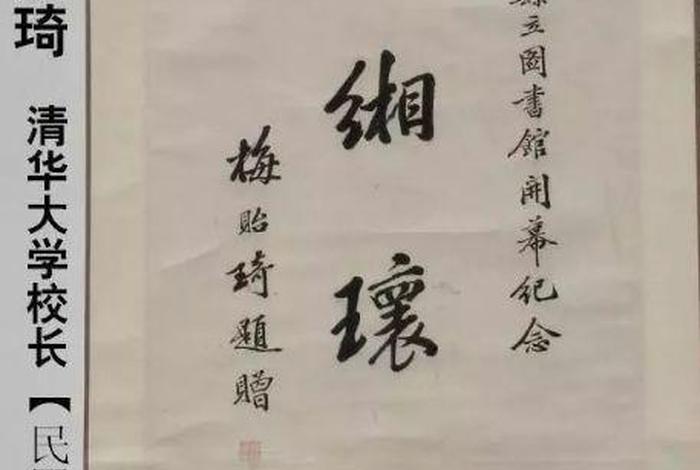 立圖書館開幕紀念
緗瓌
梅貽琦題贈
琦
清华大学校长【民